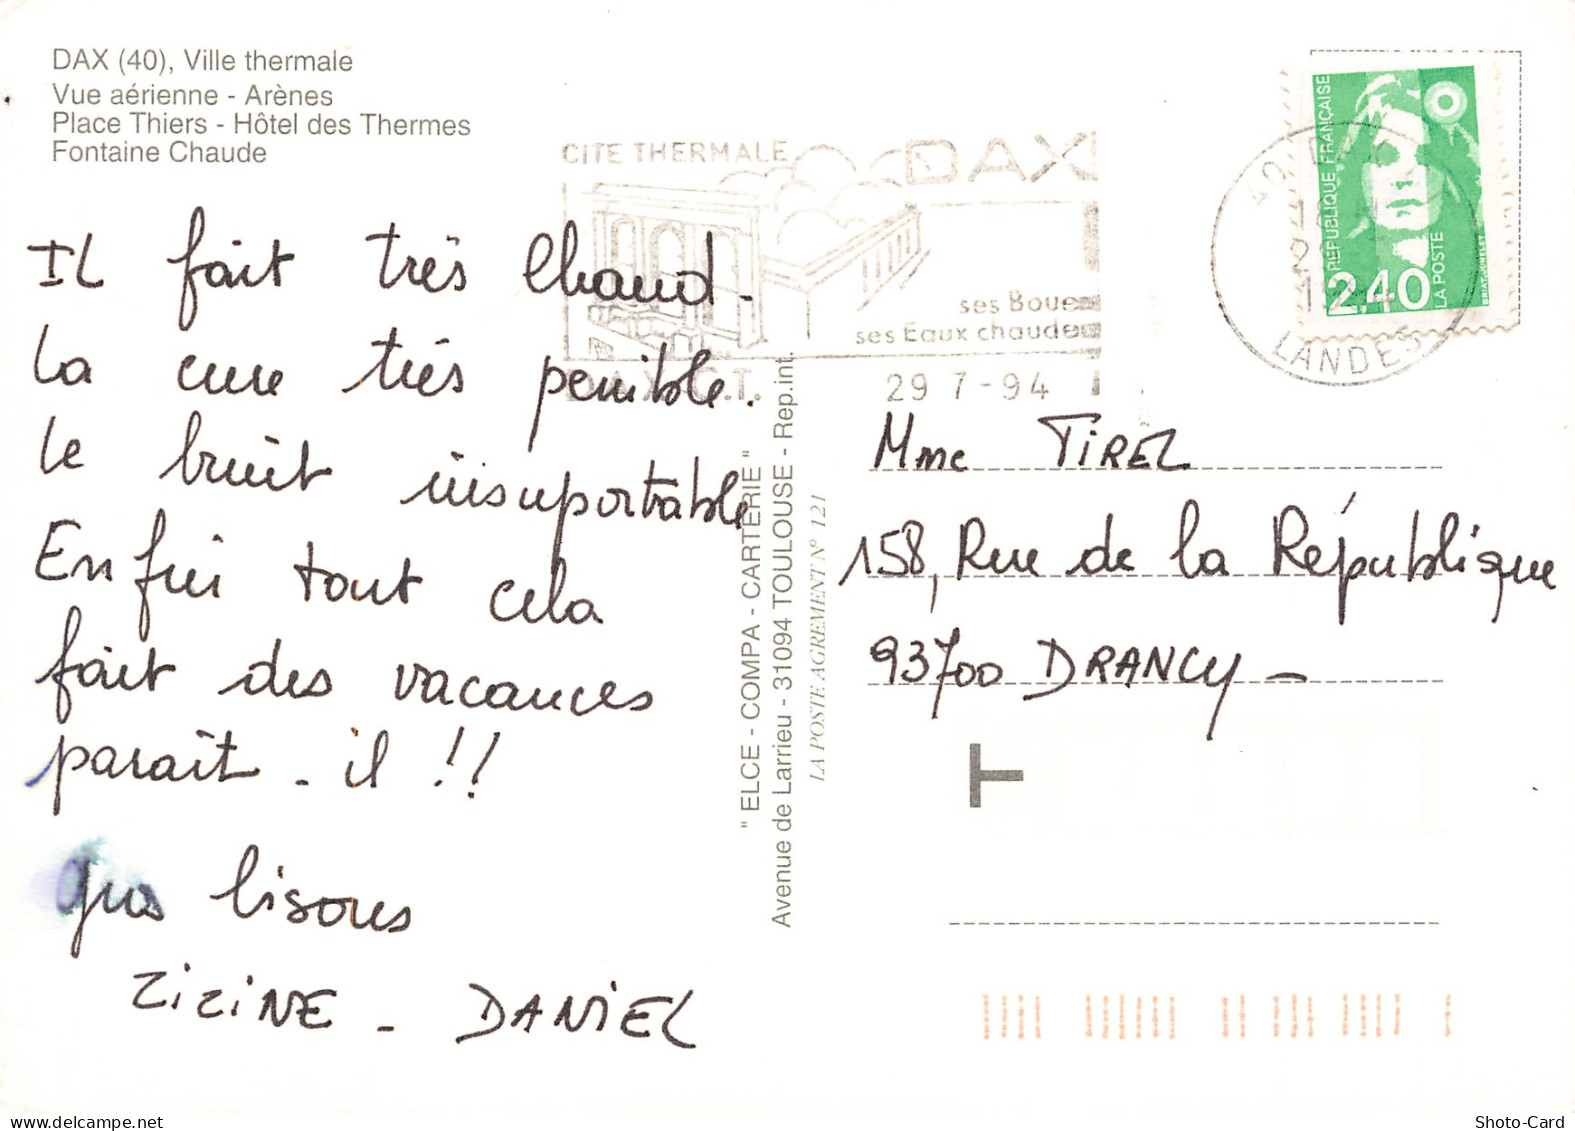 DAX (40), Ville thermale
Vue aérienne - Arènes
Place Thiers - Hôtel des Thermes
Fontaine Chaude
CITE THERMALE DAX
ses Boues
ses Eaux chaudes
29 7-94
LANDES
REPUBLIQUE FRANÇAISE
2,40
LA POSTE
Il fait très chaud.
La cure très penible.
Le bruit insuportable
Enfin tout cela
fait des vacances
parait-il !!
gros bisous
ZIZINE - DANIEL
" ELCE - COMPA - CARTERIE "
Avenue de Larrieu - 31094 TOULOUSE - Rep.int.
LA POSTE AGREMENT N° 121
Mme TIREL
158, Rue de la République
93700 DRANCY -
T
Shoto-Card